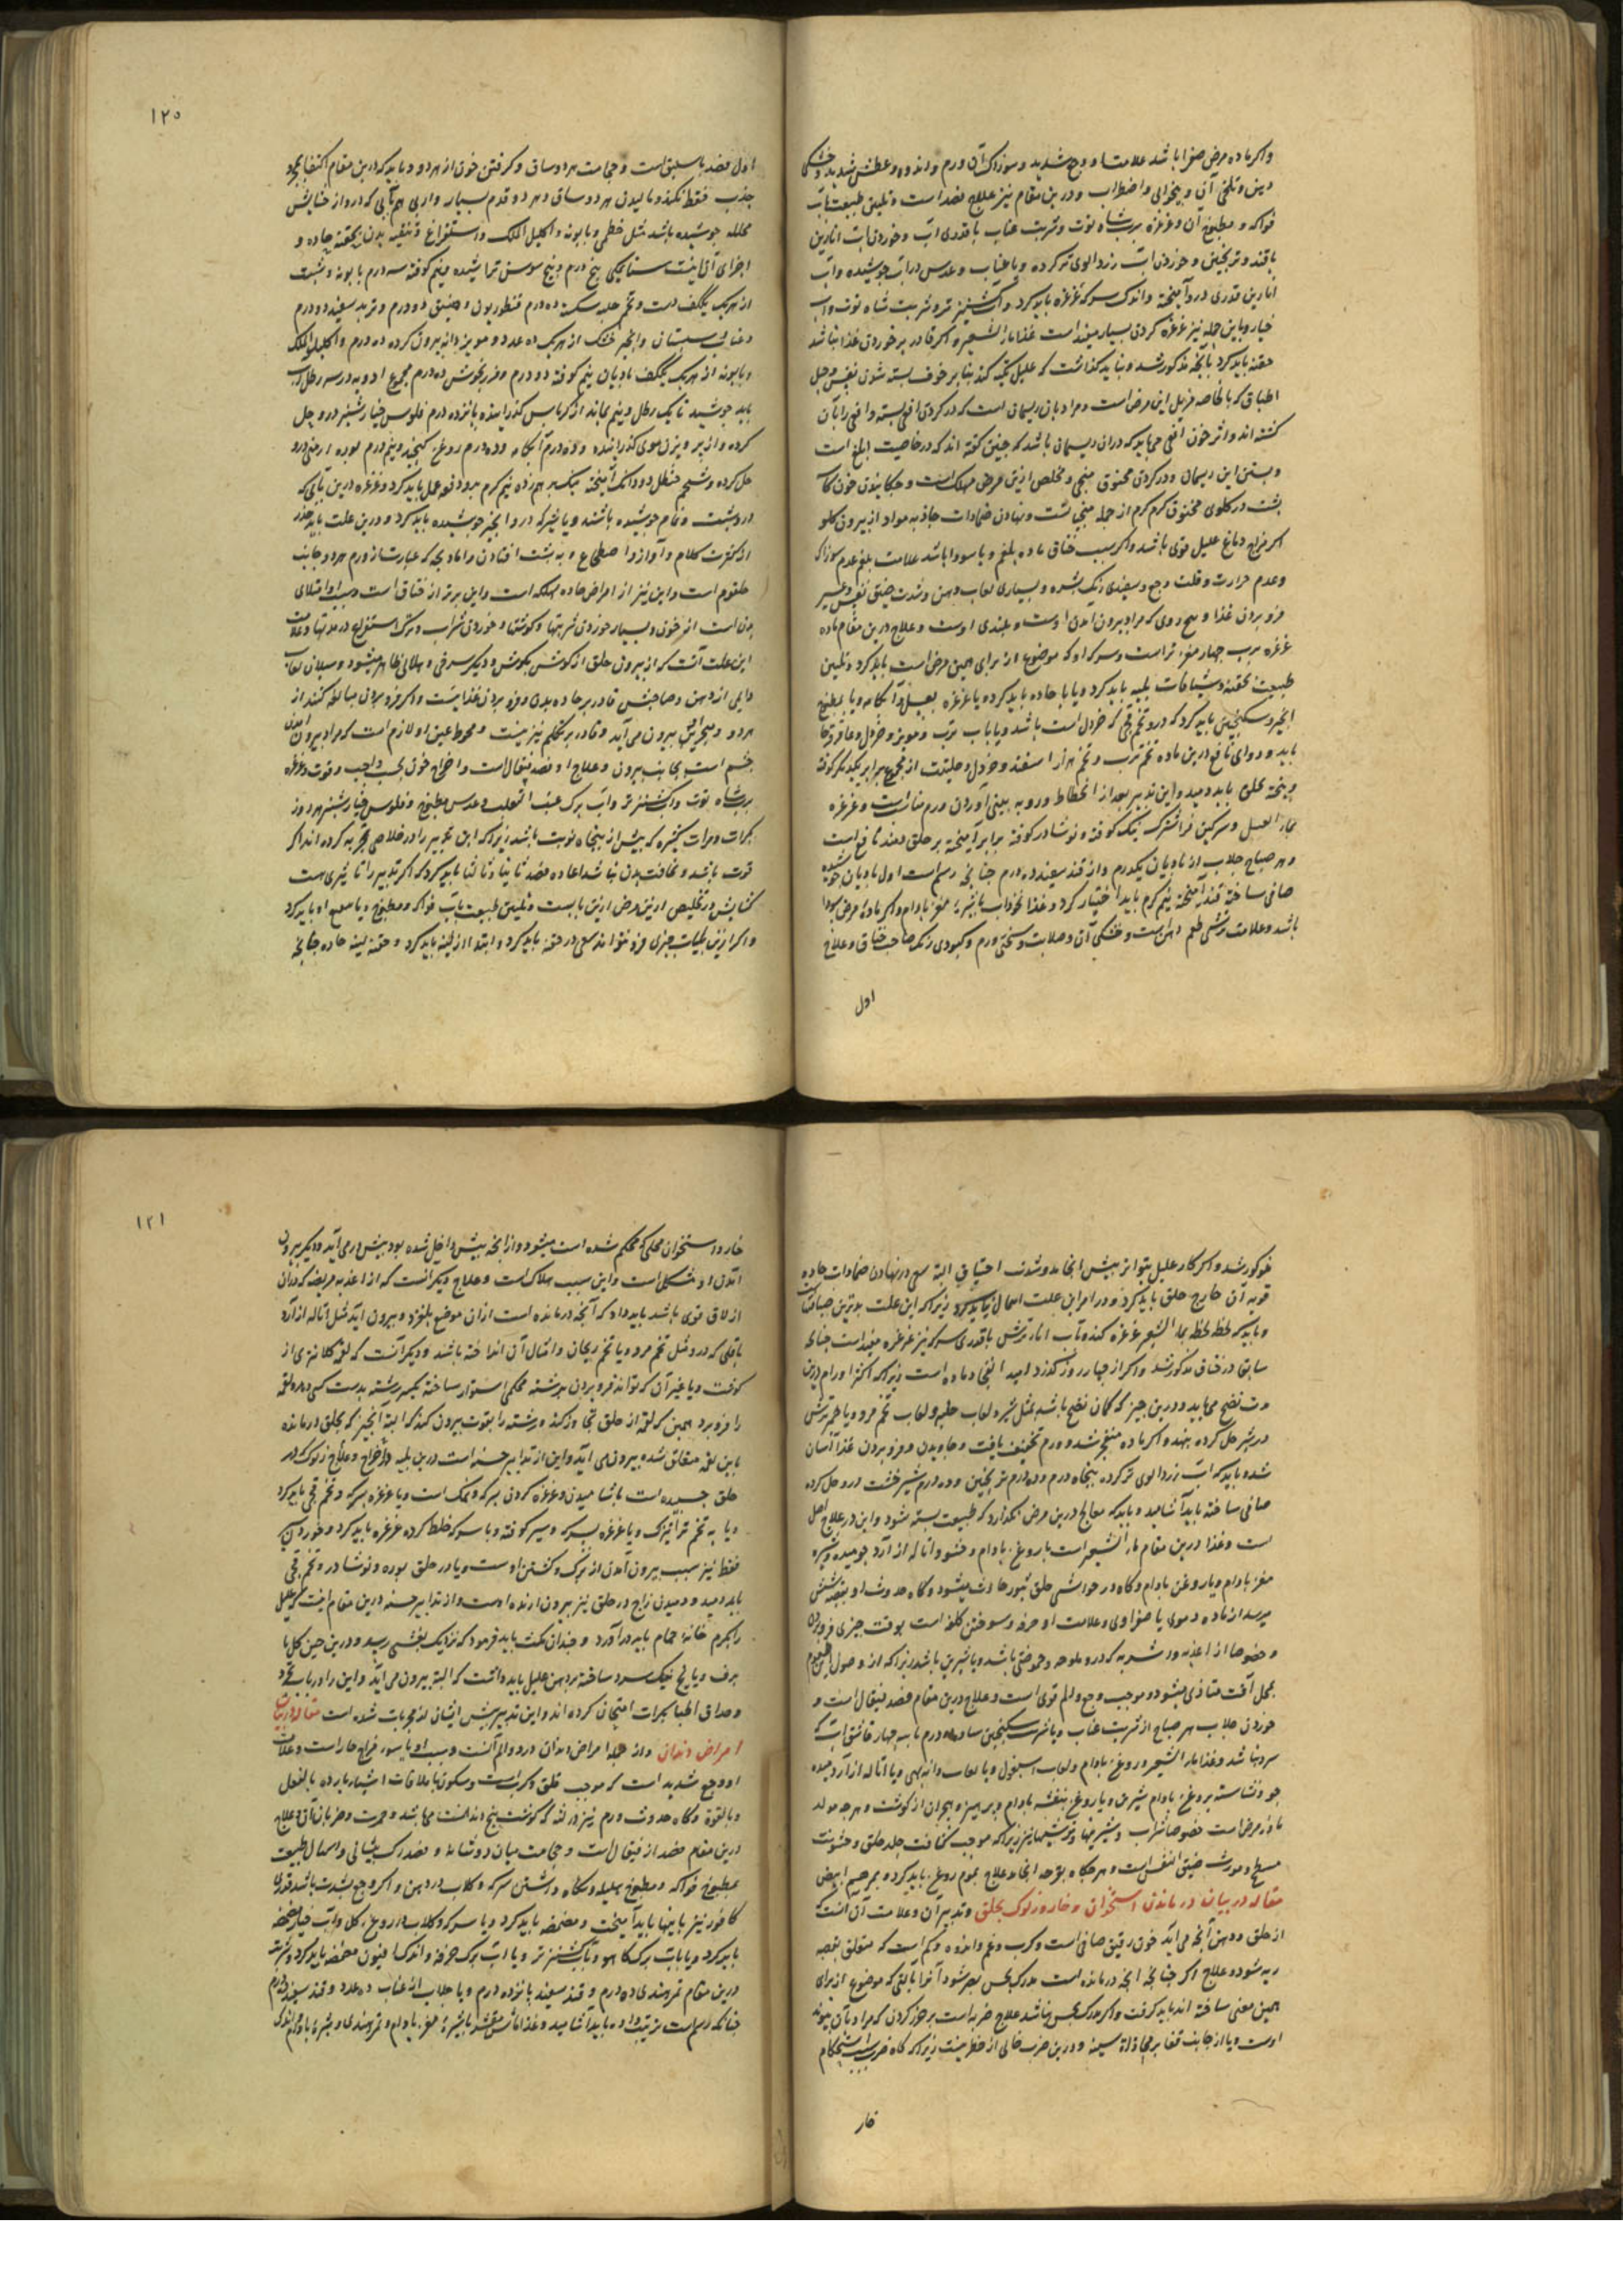 واکر ماده مرض صفرا باشد علامت او وجع شدید و سوزاک آن ورم و اندوه و عطش شدید و خشکی
دهن و تلخی آن و بیخوابی و اضطراب و درین مقام نیز علاج فصد است و تلیین طبیعت بآب
فواکه و مطبوخ آن و غرغره برب شاه توت و شربت عناب با قدری آب و خوردن آب انارین
با قند و ترنجبین و خوردن آب زردالوی تر کرده و یا عناب و عدس در آب جوشیده و آب
انارین قدری درو آمیخته و اندک سرکه غرغره باید کرد و آب کشنیز تر و شربت شاه توت و آب
خیار و باین جمله نیز غرغره کردن بسیار مفید است غذا ماء الشعیر و اکر قادر بر خوردن غذا نباشد
حقنه باید کرد بآنچه مذکور شد و نباید کذاشت که علیل تکیه کند بنا بر خوف بسته شدن نفس و حبل
اطباق که بالخاصه مزیل این مرض است و مراد بان ریسمان است که در کردن افعی بسته و افعی را بآن
کشته اند و اثر خون افعی می باید که دران ریسمان باشد که چنین کفته اند که در خاصیت ابلغ است
و بستن این ریسمان در کردن مخنوق منجی و مخلص ازین مرض مهلک است و چکانیدن خون
پشت در کلوی مخنوق کرم کرم از جمله منجیات است و نهادن ضمادات جاذبه مواد از بیرون کلو
اکر مزاج دماغ علیل قوی باشد و اکر سبب خناق ماده بلغم و یا سودا باشد علامت بلغم عدم سوزاک
و عدم حرارت و قلت وجع و سفیدی رنک بشره و بسیاری لعاب دهن و شدت ضیق نفس و عسر
فرو بردن غذا و علاج درین مقام ماده
غرغره برب چهار مغز تر است و سرکه او که موضوع از برای همین مرض است باید کرد و تلیین
طبیعت بحقنه و شیافات لینه باید کرد و یا با حاده باید کرد و یا غرغره بعسل و آبکامه و یا بمطبوخ
انجیر و سکنجبین باید کرد که درو تخم که خردل است باشد و یا باب ترب و مویز و خردل و عاقرقرحا
باید و دوای نافع درین ماده تخم ترب و تخم هزار اسفند و خردل و حلتیت از مجموع برابر یکدیکر کوفته
و بیخته بحلق باید دمید و این تدبیر بعد از انحطاط و رو به پستی آوردن ورم مناسب است و غرغره
بماء العسل و سرکین فراشترک نیک کوفته و نوشادر کوفته برابر آمیخته بر حلق دمند نافع است
و هر صباح جلاب از بادیان یکدرم و از قند سفید ده درم چنانچه رسم است اول بادیان جوشیده
صافی ساخته قند آمیخته نیم کرم باید اختیار کرد و غذا نخوداب با شیره مغز بادام و اکر ماده مرض سودا
باشد و علامت ترشی طعم دهن است و خشکی آن و صلابت و سختی ورم و کبودی رنک صاحب خناق و علاج
اول
۱۲۰
اول فصد باسلیق است و حجامت هر دو ساق و کرفتن خون از هر دو و باید که درین مقام اکتفا بمجرد
جذب فقط نکند و مالیدن هر دو ساق و هر دو قدم بسیار و اری هم بآبی که درو از حشایش
محلله جوشیده باشد مثل خطمی و بابونه و اکلیل الملک و استفراغ و تنقیه بدن بحقنه حاده و
اجزای آن اینست سنا مکی پنج درم و بیخ سوسن تراشیده و نیم کوفته سه درم بابونه و شبت
از هر یک یکف دست و تخم حلبه سکه ده درم قنطوریون دقیق دو درم و تربد سفید دو درم
و عناب سبستان و انجیر خشک از هر یک ده عدد و مویز دانه بیرون کرده ده درم و اکلیل الملک
و بابونه از هر یک یکف بادیان نیم کوفته دو درم و مرزنجوش ده درم مجموع ادویه در سه رطل آب
باید جوشید تا یک رطل و نیم بماند از کرباس کذرانیده پانزده درم فلوس خیار شنبر درو حل
کرده و از پرویزن موی کذرانیده و ده درم آبکامه و ده درم روغن کنجد و نیم درم بوره ارمنی درو
حل کرده و شحم حنظل دو دانک آمیخته نیک بر هم زده نیم کرم بدو دفعه عمل باید کرد و غرغره درین بآبی که
درو شبت و تمام جوشیده باشند و یا شیر که درو انجیر جوشیده باید کرد و درین علت باید حذر
از کثرت کلام و آواز و اضطجاع و به پشت افتادن و اما ذبحه که عبارتست از ورم هر دو جانب
حلقوم است و این نیز از امراض حاده مهلکه است و این بدتر از خناق است و سبب او امتلای
بدن است از خون و بسیار خوردن شربتها و کوشتها و خوردن شراب و ترک استفراغ در مدتها و علامت
این علت آنست که از بیرون حلق از کوش بکوش دیکر سرخی و هلالی ظاهر میشود و سیلان لعاب
دایمی از دهن و صاحبش قادر بر جاویدن و فرو بردن غذا نیست و اکر فرو بردن مبالغه کند از
هر دو منخرین بیرون می آید و قادر بر تکلم نیز نیست و جحوظ عین او لازم است که مراد بیرون آمدن
چشم است بجانب بیرون و علاج او فصد قیفال است و اخراج خون بحسب واجب و قوت و غرغره
برب شاه توت و آب کشنیز تر و آب برک عنب الثعلب و عدس مطبوخ و فلوس خیار شنبر هر روز
بکرات و مرات کثیره که بیش از پنجاه نوبت باشد زیرا که این تدبیر را در خلاصی تجربه کرده اند اکر
قوت باشد و نحافت بدن نباشد اعاده فصد ثانیا و ثالثا باید کرد که اکر تدبیر را تاثیری هست
کشایش در تخلیص ازین مرض ازین باب است و تلیین طبیعت بآب فواکه و مطبوخ و یا باید کرد
و اکر ازین ملینات چیزی فرو نتواند سعی در حقنه باید کرد و ابتدا از لینه باید کرد و حقنه لینه حاده چنانچه
مذکور شد و اکر کار علیل بتواتر بیش انجامد و شدت اختناق البته سعی در نهادن ضمادات حاده
قویه آن خارج حلق باید کرد و در امر این علت اهمال نباید کرد زیرا که این علت بدترین خناقات است
و باید که لحظه لحظه بماء الشعیر غرغره کند و بآب انار ترش با قدری سرکه نیز غرغره مفید است چنانچه
سابق در خناق مذکور شد و اکر از چهار روز کذرد امید انفجار ماده است زیرا که اکثر اورام درین
مدت نضج می یابد و درین چیز که کمان نضج باشد بمثل شیر و لعاب حلبه و لعاب تخم مرو و یا خمیر ترش
در شیر حل کرده بنهد و اکر ماده منفجر شد و ورم تخفیف یافت و جاویدن و فرو بردن غذا آسان
شده باید که آب زردالوی تر کرده پنجاه درم و ده درم ترنجبین و ده درم شیر خشت درو حل کرده
صافی ساخته باید آشامید و باید که معالج درین مرض نکذارد که طبیعت بسته شود و این در علاج اصل
است و غذا درین مقام ماء الشعیر است با روغن بادام و حشو و اماله از آرد جو میده و شیره
مغز بادام و یا روغن بادام و کاه در حواشی حلق بثور حادث میشود و کاه حدوث او بقصبه شش
میرسد از ماده دموی یا صفراوی و علامت او حرقه و سوختن کلو است بوقت چیزی فرو بردن
و خصوصا از اغذیه و اشربه که درو ملوحه و حموضتی باشد و یا شیرین باشد زیرا که از وصول این طعوم
بمحل آفت متاذی میشود و موجب وجع و الم قوی است و علاج درین مقام فصد قیفال است و
خوردن جلاب هر صباح از شربت عناب و یا شربت سکنجبین ساده ده درم با سه چهار قاشق آب که
سرد باشد و غذا ماء الشعیر و روغن بادام و لعاب اسبغول و یا لعاب دانه بهی و یا اماله از آرد میده
جو و نشاسته بروغن بادام شیرین و یا روغن بنفشه بادام و پرهیز و هجران از کوشت و هر چه مولد
ماده مرض است خصوصا شراب و شیرینیها و ترشیها نیز زیرا که موجب کثافت جلد حلق و خشونت
سطح و مورث ضیق النفس است و هر کاه بقرحه انجامد علاج بموم روغن باید کرد و بمرهم ابیض
مقاله در بیان در ماندن استخوان و خار و زلوک بحلق و تدبیر آن و علامت آن آنست که
از حلق و دهن آنچه می آید خون رقیق صافی است و کرب و غم و اندوه و کم است که متعلق بقصبه
ریه شود و علاج اکر چنانچه آنچه در مانده است مدرک بحس بصر شود آنرا بآلتی که موضوع از برای
همین معنی ساخته اند باید کرفت و اکر مدرک بحس نباشد علاج ضربه است بر حرز کردن که مراد بآن پیوند
اوست و یا از جانب قفا بر محاذاة سینه و درین ضرب خالی از خطر نیست زیرا که کاه ضرب سبب استحکام
خار
۱۲۱
خار و استخوان محلی که محکم شده است میشود و از آنچه بیش داخل شده بود بیش در می آید و دیکر بیرون
آمدن او مشکل است و این سبب هلاک است و علاج دیکر آنست که از اغذیه مزلقه که در آن
ازلاق قوی باشد باید داد که آنچه در مانده است ازان موضع بلغزد و بیرون آید مثل اماله از آرد
باقلی که درو مثل تخم مرو و یا تخم ریحان و امثال آن انداخته باشند و دیکر آنست که لقمه کلانتری از
کوفت و یا غیر آن که تواند فرو بردن برشته محکمی استوار ساخته یکسر رشته بدست کسی دهد و لقمه
را فرو برد همین که لقمه از حلق تجاوز کند و رشته را بقوت بیرون کند که البته آنچیز که بحلق در مانده
باین لقمه متعلق شده بیرون می آید و این از تدابیر حسنه است درین بلیه و اخراج و علاج زلوک که در
حلق چسبیده است بآشامیدن و غرغره کردن سرکه و نمک است و یا غرغره سرکه و تخم باید کرد
و یا به تخم ترا تیزک و یا غرغره بسرکه و سیر کوفته و با سرکه خلط کرده غرغره باید کرد و خوردن سرکه
فقط نیز سبب بیرون آمدن از ترک و کشتن اوست و یا در حلق بوره و نوشادر و تخم
باید دمید و دمیدن زاج در حلق نیز بیرون آرنده اوست و از تدابیر حسنه درین مقام اینست که علیل
را بکرم خانه حمام باید در آورد و چندان مکث باید فرمود که نزدیک بغشی رسد و درین حین کل با
برف و یا یخ نیک سرد ساخته بر دهن علیل باید داشت که البته بیرون می آید و این را ارباب تجربه
و حذاق اطبا بکرات امتحان کرده اند و این تدبیر پیش ایشان از مجربات شده است مقاله در بیان
امراض دندان و از جمله امراض دندان درد و الم آنست و سبب او یا سوء مزاج حار است و علامت
او وجع شدید است که موجب قلق و کرب است و سکون بملاقات اشیاء بارده بالفعل
و بالقوة و کاه حدوث ورم نیز در لثه که کوشت بیخ دندانست می باشد و حمرت و ضربان آن و علاج
درین مقام فصد از قیفال است و حجامت میان دو شانه و فصد رک پیشانی و اسهال طبیعت
بمطبوخ فواکه و مطبوخ هلیله و نکاه داشتن سرکه و کلاب در دهن و اکر وجع بشدت باشد قدری
کافور نیز باینها باید آمیخت و مضمضه باید کرد و یا سرکه و کلاب و روغن کل و آب خیار مضمضه
باید کرد و یا بآب برک کاهو و بآب کشنیز تر و یا آب برک خرفه و اندک افیون مضمضه باید کرد و شربت
درین مقام تمر هندی ده درم و قند سفید پانزده درم و یا جلاب از عناب ده عدد و قند سفید ده درم
چنانکه رسم است ترتیب داده باید آشامید و غذا ماش مقشر با شیره مغز بادام و تمر هندی و شیره بادام اندک